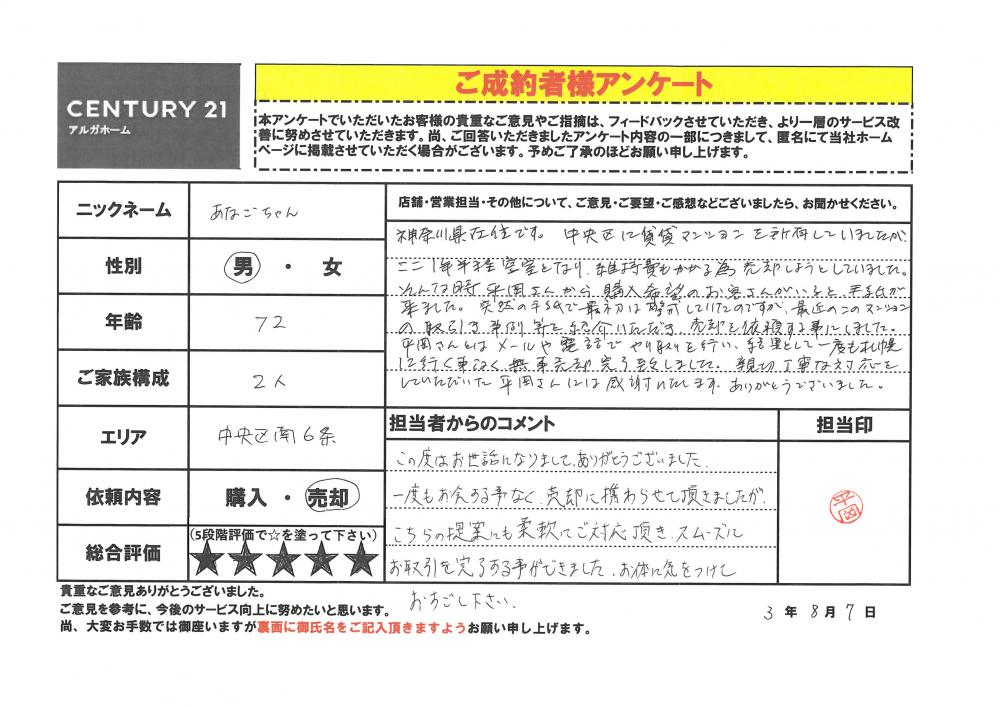 CENTURY 21
アルガホーム
ご成約者様アンケート
本アンケートでいただいたお客様の貴重なご意見やご指摘は、フィードバックさせていただき、より一層のサービス改
善に努めさせていただきます。尚、ご回答いただきましたアンケート内容の一部につきまして、匿名にて当社ホーム
ページに掲載させていただく場合がございます。予めご了承のほどお願い申し上げます。
ニックネーム
あなごちゃん
性別
男・女
年齢
72
ご家族構成
2人
エリア
中央区南6条
依頼内容
購入・売却
総合評価
(5段階評価で☆を塗って下さい)
★★★★★
店舗・営業担当・その他について、ご意見・ご要望・ご感想などございましたら、お聞かせください。
神奈川県在住です。中央区に賃貸マンションを所有していましたが、
ここ1年半程空室となり、維持費もかかる為売却しようとしていました。
そんな時平岡さんから購入希望のお客さんがいると手紙が
来ました。突然の手紙で最初は警戒していたのですが、最近のこのマンション
の取引き事例等を紹介いただき、売却を依頼する事にしました。
平岡さんとはメールや電話でやり取りを行い、結果として一度も札幌
に行く事なく無事売却完了致しました。親切丁寧な対応を
していただいた平岡さんには感謝いたします。ありがとうございました。
担当者からのコメント
この度はお世話になりまして、ありがとうございました。
一度もお会する事なく、売却に携わらせて頂きましたが、
こちらの提案にも柔軟にご対応頂き、スムーズに
お取引を完了する事ができました。お体に気をつけて
おすごし下さい。
担当印
平岡
貴重なご意見ありがとうございました。
ご意見を参考に、今後のサービス向上に努めたいと思います。
尚、大変お手数では御座いますが裏面に御氏名をご記入頂きますようお願い申し上げます。
3年8月7日